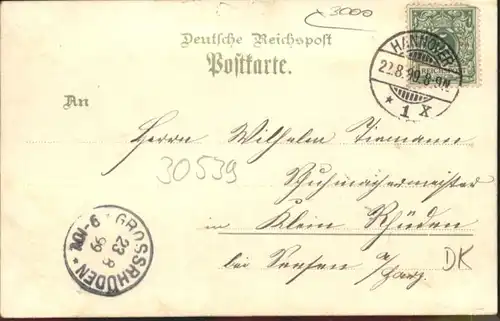 3000
Deutsche Reichspost
Postkarte.
HANNOVER
22.8.99.8-9N.
* 1 X
REICHSPOST
An
Herrn Wilhelm Tiemann
30539
Schuhmachermeister
in Klein Rhüden
bei Seesen a/Harz.
DK
GROSSRHÜDEN
23 8
99